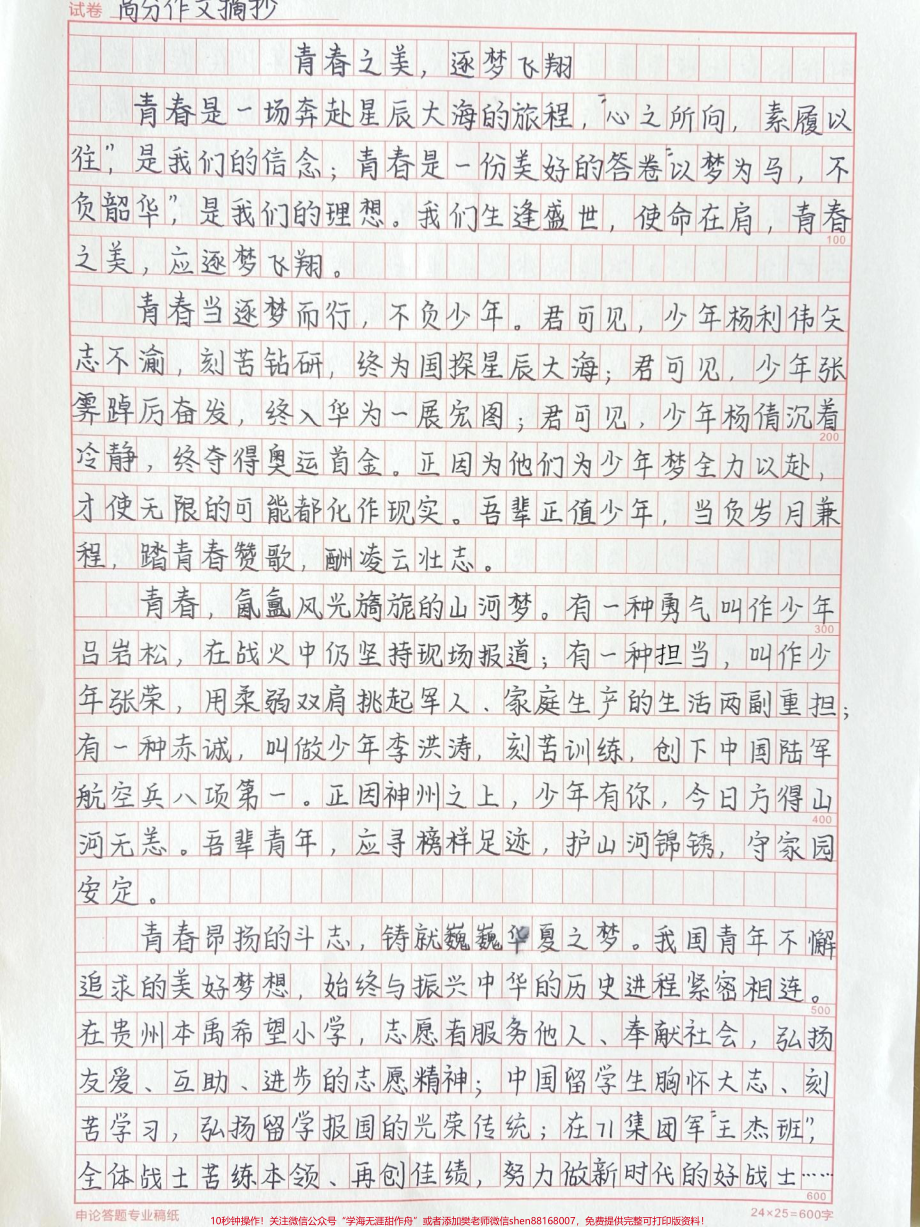 试卷 高分作文摘抄
青春之美，逐梦飞翔
青春是一场奔赴星辰大海的旅程，“心之所向，素履以
往”，是我们的信念；青春是一份美好的答卷“以梦为马，不
负韶华”，是我们的理想。我们生逢盛世，使命在肩，青春
100
之美，应逐梦飞翔。
青春当逐梦而行，不负少年。君可见，少年杨利伟矢
志不渝，刻苦钻研，终为国探星辰大海；君可见，少年张
霁踔厉奋发，终入华为一展宏图；君可见，少年杨倩沉着
200
冷静，终夺得奥运首金。正因为他们为少年梦全力以赴，
才使无限的可能都化作现实。吾辈正值少年，当负岁月兼
程，踏青春赞歌，酬凌云壮志。
青春，氤氲风光旖旎的山河梦。有一种勇气叫作少年
300
吕岩松，在战火中仍坚持现场报道；有一种担当，叫作少
年张荣，用柔弱双肩挑起军人、家庭生产的生活两副重担；
有一种赤诚，叫做少年李洪涛，刻苦训练，创下中国陆军
航空兵八项第一。正因神州之上，少年有你，今日方得山
400
河无恙。吾辈青年，应寻榜样足迹，护山河锦锈，守家园
安定。
青春昂扬的斗志，铸就巍巍华夏之梦。我国青年不懈
追求的美好梦想，始终与振兴中华的历史进程紧密相连。
500
在贵州本禹希望小学，志愿者服务他人、奉献社会，弘扬
友爱、互助、进步的志愿精神；中国留学生胸怀大志、刻
苦学习，弘扬留学报国的光荣传统；在71集团军“王杰班”，
全体战士苦练本领、再创佳绩，努力做新时代的好战士……
600
申论答题专业稿纸 24×25=600字
10秒钟操作！关注微信公众号“学海无涯甜作舟”或者添加樊老师微信shen88168007，免费提供完整可打印版资料！